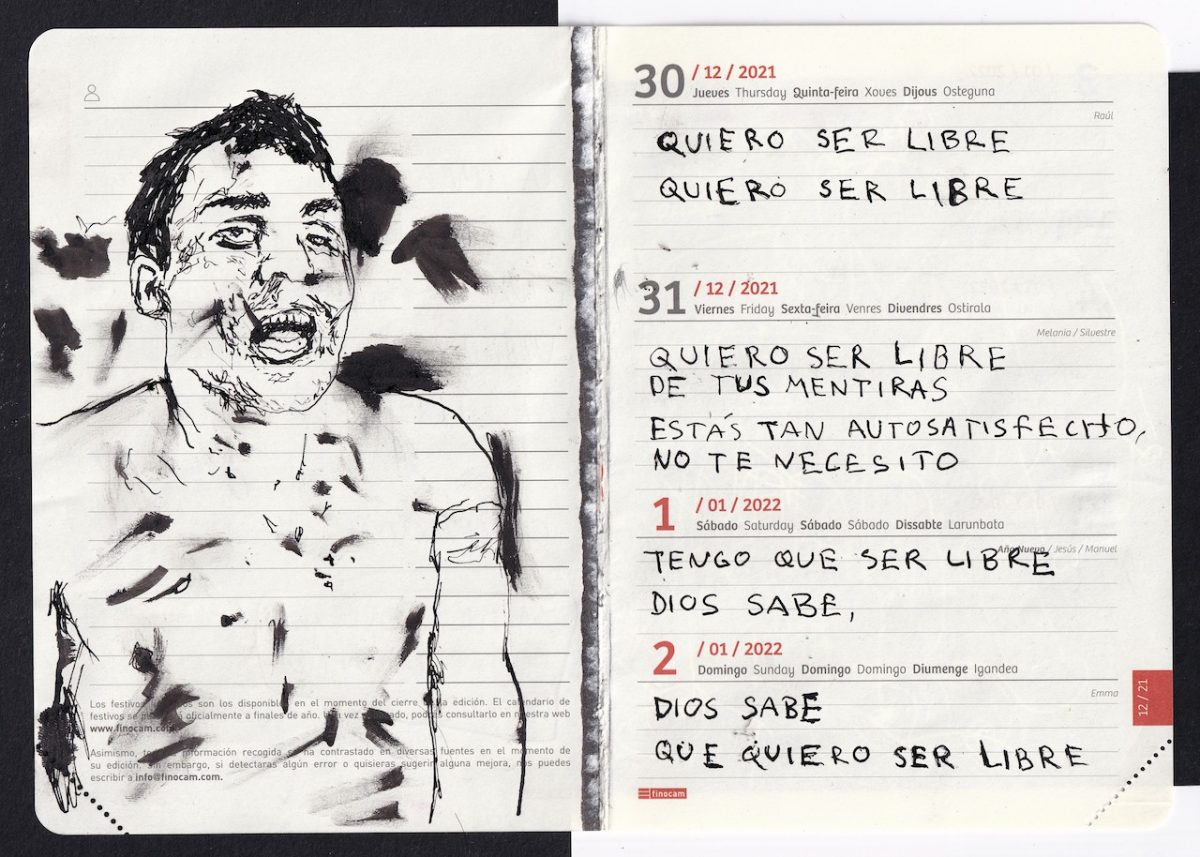 Los festivos son los disponibles en el momento del cierre la edición. El calendario de
festivos se oficialmente a finales de año. vez podrás consultarlo en nuestra web
www.finocam.com
Asimismo, información recogida se ha contrastado en diversas fuentes en el momento de
su edición. Sin embargo, si detectaras algún error o quisieras sugerir alguna mejora, nos puedes
escribir a info@finocam.com.
30 / 12 / 2021
Jueves Thursday Quinta-feira Xoves Dijous Osteguna
Raúl
QUIERO SER LIBRE
QUIERO SER LIBRE
31 / 12 / 2021
Viernes Friday Sexta-feira Venres Divendres Ostirala
Melania / Silvestre
QUIERO SER LIBRE
DE TUS MENTIRAS
ESTÁS TAN AUTOSATISFECHO,
NO TE NECESITO
1 / 01 / 2022
Sábado Saturday Sábado Sábado Dissabte Larunbata
Año Nuevo / Jesús / Manuel
TENGO QUE SER LIBRE
DIOS SABE,
2 / 01 / 2022
Domingo Sunday Domingo Domingo Diumenge Igandea
Emma
DIOS SABE
QUE QUIERO SER LIBRE
12 / 21
finocam